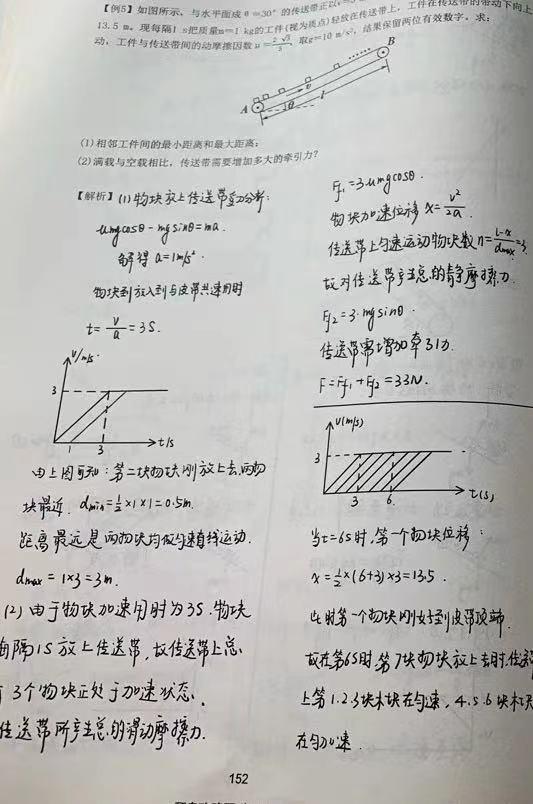 【例5】如图所示，与水平面成θ=30°的传送带正以v=3
13.5 m。现每隔1 s把质量m=1 kg的工件(视为质点)轻放在传送带上，工件在传送带的带动下向上
动，工件与传送带间的动摩擦因数μ=2√3/5，取g=10 m/s²，结果保留两位有效数字。求：
A
B
v
θ
l
(1)相邻工件间的最小距离和最大距离；
(2)满载与空载相比，传送带需要增加多大的牵引力？
【解析】(1)物块放上传送带受力分析：
μmgcosθ-mgsinθ=ma.
解得 a=1m/s².
物块到放入到与皮带共速用时
t=v/a=3S.
V/m/s
3
1 3 t/s
由上图可知：第二块物块刚放上去，两物
块最近. dmin=½×1×1=0.5m.
距离最远是两物块均做匀速直线运动.
dmax=1×3=3m.
(2)由于物块加速用时为3S.物块
每隔1S放上传送带，故传送带上总
有3个物块正处于加速状态.
传送带所产生总的滑动摩擦力.
Ff1=3μmgcosθ.
物块加速位移 x=v²/2a.
传送带上匀速运动物块数 n=(L-x)/dmax=3.
故对传送带产生总的静摩擦力.
Ff2=3·mgsinθ.
传送带需增加牵引力.
F=Ff1+Ff2=33N.
V(m/s)
3
3 6 t(s)
当t=6S时，第一个物块位移：
x=½×(6+3)×3=13.5.
此时第一个物块刚好到皮带顶端.
故在第6S时，第7块物块放上去时，传送带
上第1.2.3块木块在匀速，4.5.6块木块
在匀加速.
152